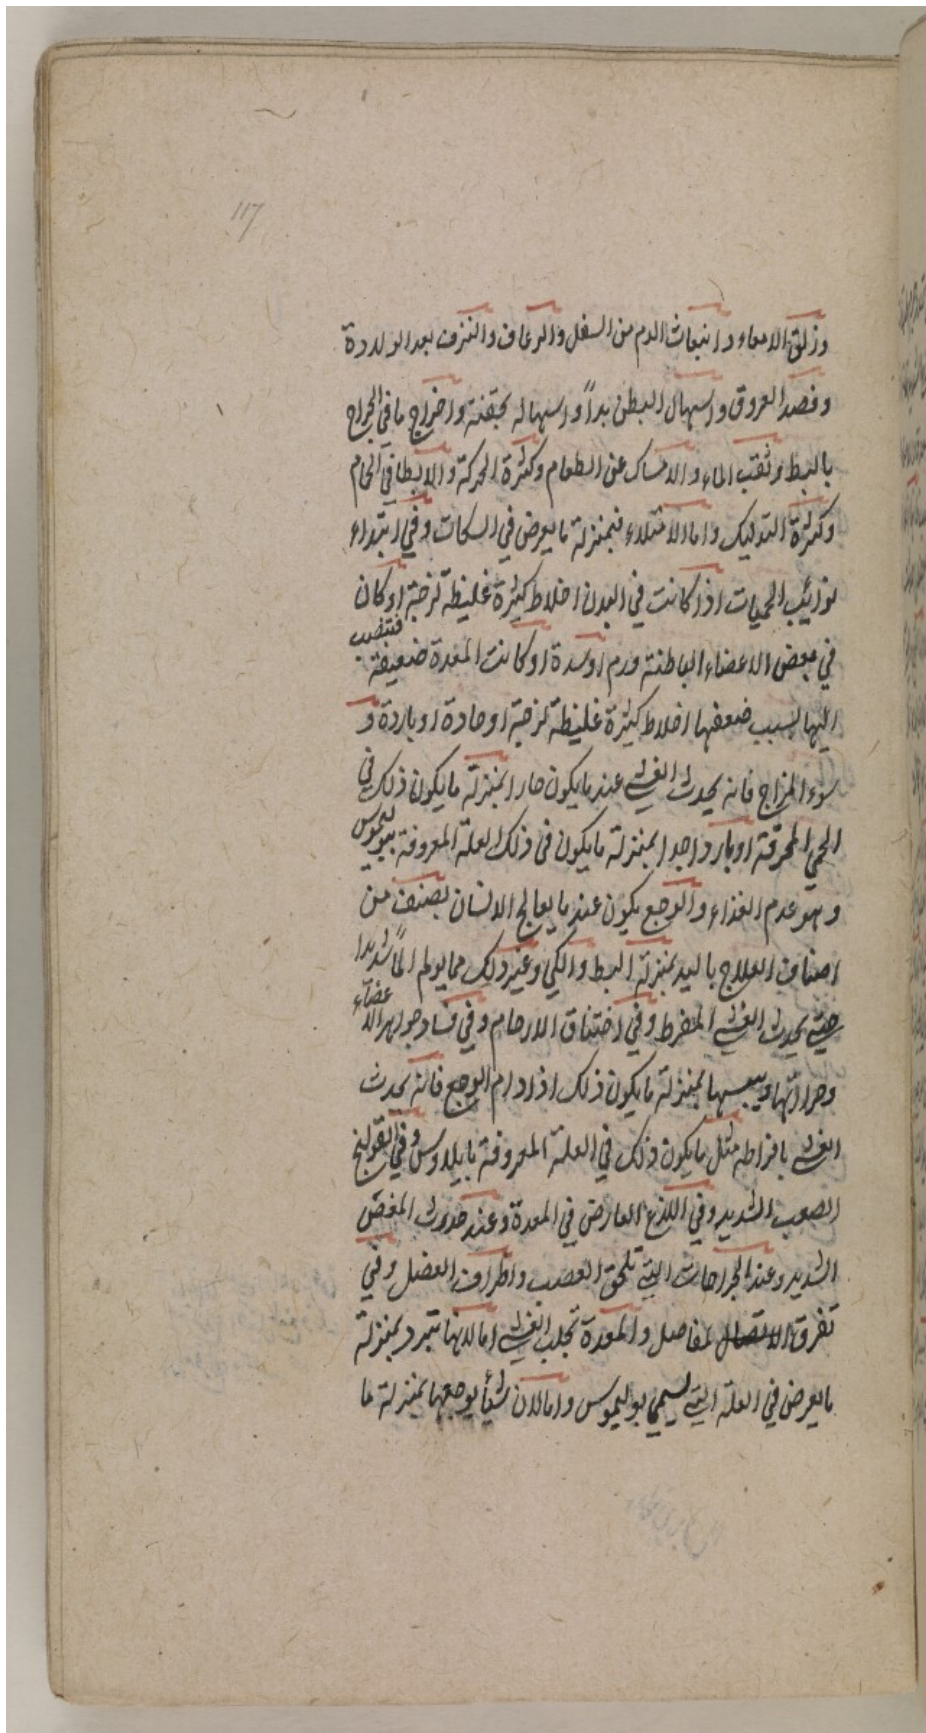 117
وزلق الامعاء وانبعاث الدم من السفل والرعاف والنزف بعد الولادة
وفصد العروق واسهال البطن بدأً واسهاله بحقنة واخراج ما في الخراج
بالبط وثقب الماء والامساك عن الطعام وكثرة الحركة والابطا في الحمام
وكثرة التدليك واما الامتلاء فبمنزلة ما يعرض في السكات وفي ابتداء
نوائب الحميات اذا كانت في البدن اخلاط كثيرة غليظة لزجة او كان
في بعض الاعضاء الباطنة ورم او سدة او كانت المعدة ضعيفة فتنصب
اليها بسبب ضعفها اخلاط كثيرة غليظة لزجة او حادة او باردة و
سوء المزاج فانه يحدث الغشي عند ما يكون حارا بمنزلة ما يكون ذلك في
الحمى المحرقة او باردا جدا بمنزلة ما يكون في ذلك العلة المعروفة ببوليموس
وهو عدم الغذاء والوجع يكون عند ما يعالج الانسان بصنف من
اصناف العلاج باليد بمنزلة البط والكي وغير ذلك مما يولم الماً شديدا
حتى يحدث الغشي المفرط وفي اختناق الارحام وفي فساد جواهر الاعضاء
وحراراتها ويبسها بمنزلة ما يكون ذلك اذا دام الوجع فانه يحدث
الغشي بافراطه مثل ما يكون ذلك في العلة المعروفة بايلاوس وفي القولنج
الصعب الشديد وفي اللذع العارض في المعدة وعند حدوث المغص
الشديد وعند الجراحات التي تلحق العصب واطراف العضل وفي
تفرق الاتصال لمفاصل والمعدة تجلب الغشي اما لانها تبرد بمنزلة
ما يعرض في العلة التي تسمى بوليموس واما لان شيأ يوجعها بمنزلة ما